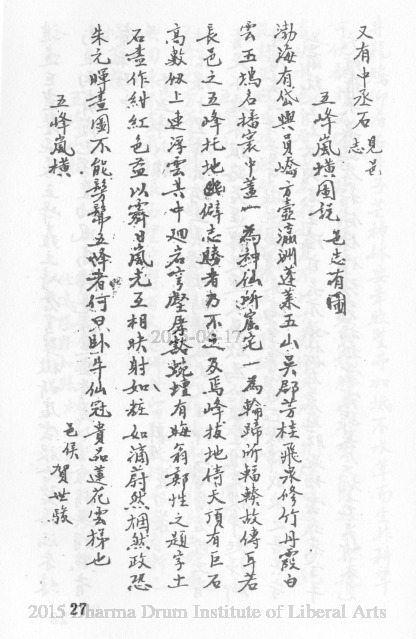 又有中丞石 見吳志
五峰嵐橫圖說 邑志有圖
渤海有岱輿員嶠方壺瀛洲蓬萊五山吳郡芳桂飛泉修竹丹霞白
雲五塢名播寰中蓋一為神仙所窟宅一為輪蹄所輻輳故傳耳若
長邑之五峰托地幽僻志勝者乃不之及焉峰拔地倚天頂有巨石
高數仞上連浮雲其中迴岩穹壑摩蜿壇有晦翁鄭性之題字土
石盡作紺紅色益以霽日嵐光互相映射如粧如滴蔚然稠然政恐
朱元暉畫圖不能髣髴五峰者何曰臥牛仙冠貴品蓮花雲梯也
邑侯 賀世駿
五峰嵐橫
2015-04-17
27
2015 Dharma Drum Institute of Liberal Arts